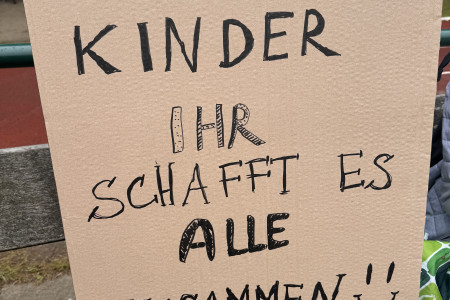 KINDER
IHR
SCHAFFT ES
ALLE
ZUSAMMEN!!